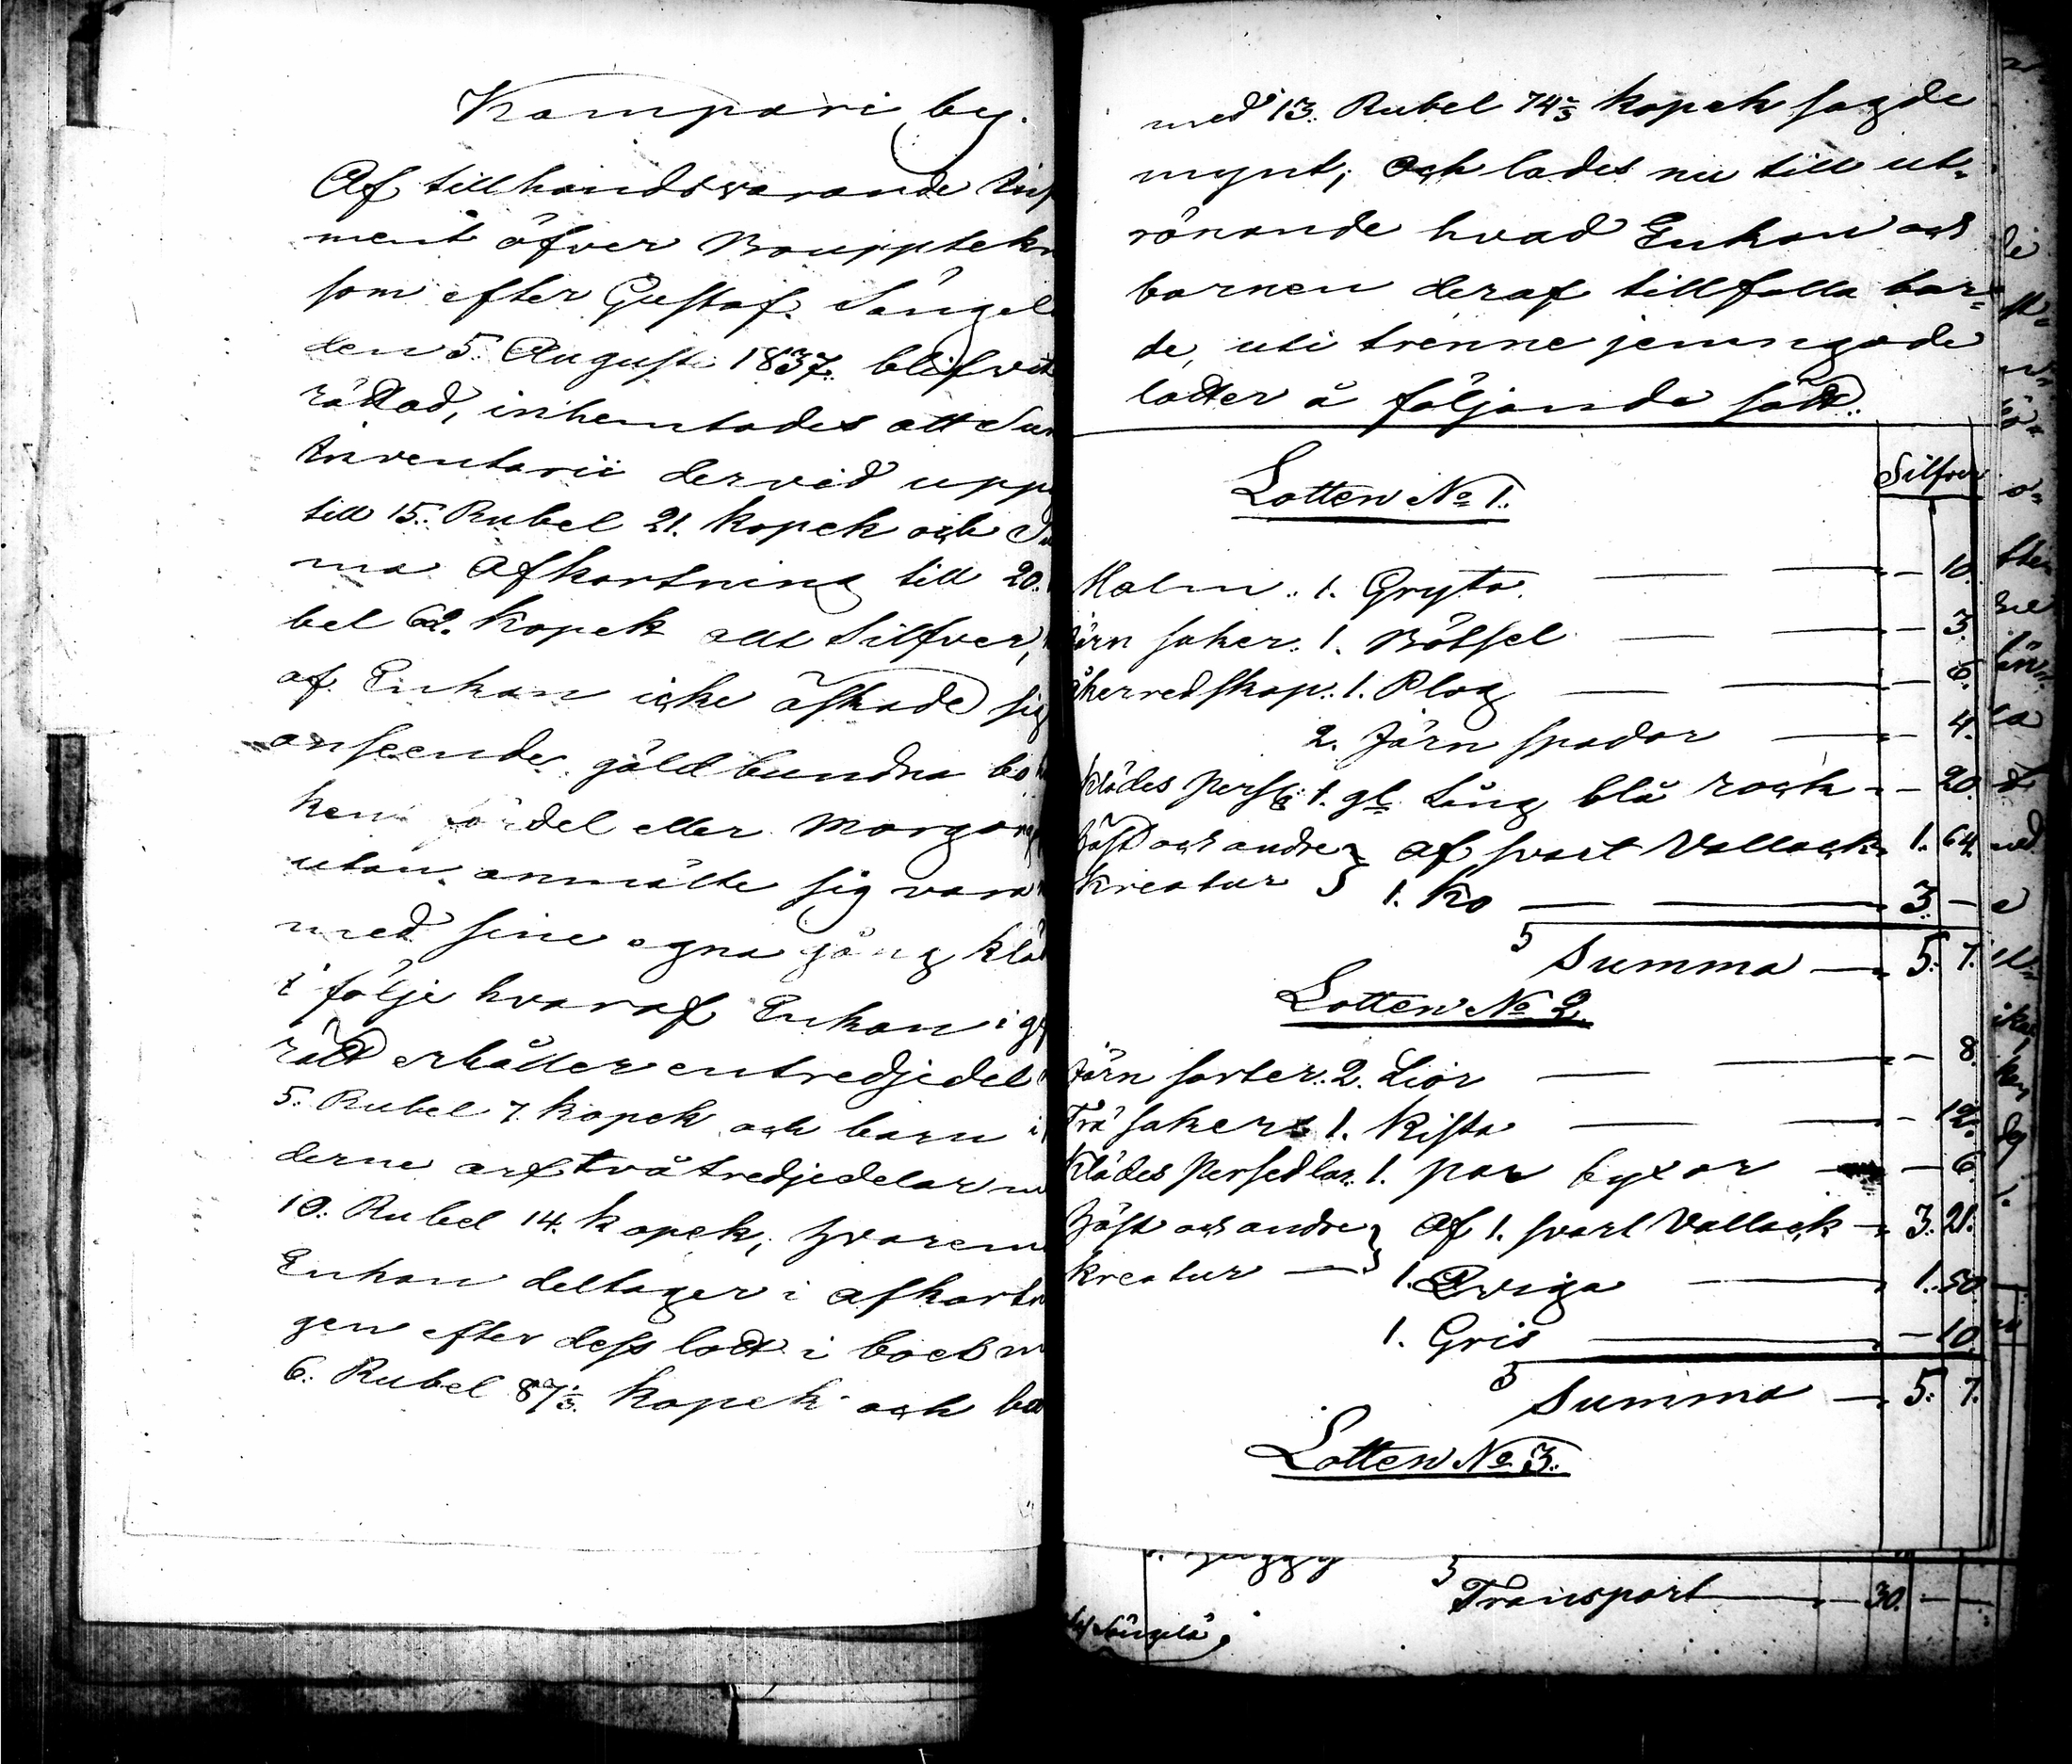 Kampari by.
Af tillhandsvarande Ins
ment öfver Bouppteckn
som efter Gustaf Sångel
den 5. August 1837. blifvit
rättad, inhemtades att Sum
Inventarii dervid uppg
till 15. Rubel 21. kopek och Su
ma Afkortning till 20.
bel 62. Kopek allt Silfver,
af Enkan icke äskade sig
anseende gäldbundna bo
ken fördel eller Morgong
utan anmälte sig vara
med sine egna gång kläd
i följe hvaraf Enkan i gif
rätt erhåller entredjedel
5. Rubel 7. kopek och barn i
derne arf två tredjedelar m
10. Rubel 14. kopek, hvarem
Enkan deltager i afkortn
gen efter dess lott i boet m
6. Rubel 87⅓. kopek och ba
med 13. Rubel 74⅔ kopek sagde
mynt; och lades nu till ut=
rönande hvad Enkan och
barnen deraf tillfalla bor=
de, uti trenne jemngode
lotter å följande sätt.
Silfver
Lotten No 1.
Malm. 1. Gryta. — — 10.
Järn saker. 1. Bötsel — — 3.
Åkerredskap. 1. Plog — — 6.
2. Järn spador — — 4.
Klädes Pers: 1. gl Lång blå rock — 20.
Häst och andre } af svart Vallack 1. 64.
kreatur } 1. Ko — — 3. —
Summa — 5. 7.
Lotten No 2.
Järn sorter. 2. Lior — — 8.
Trä saker 1. Kista — — 12.
Klädes Persedlar. 1. par byxor — — 6.
Häst och andre } Af 1. svart Vallack — 3. 21.
kreatur — } 1. Qviga — 1. 50.
1. Gris — — 10.
Summa — 5. 7.
Lotten No 3.
Transport — 30. — —